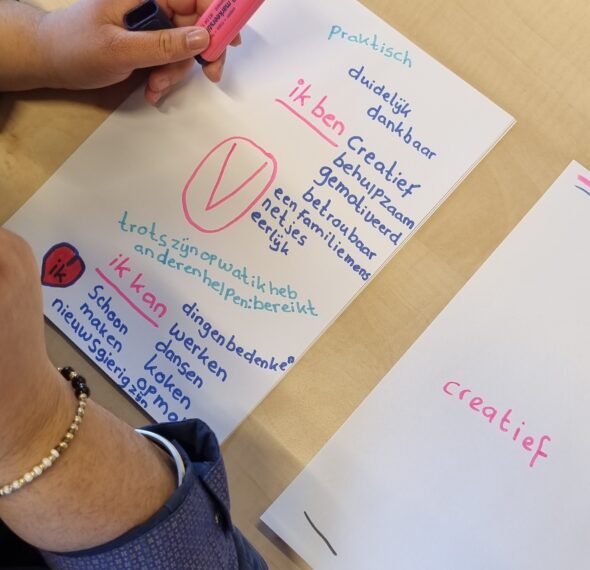 praktisch
duidelijk
dankbaar
ik ben
creatief
behulpzaam
gemotiveerd
betroubaar
een familiemens
netjes
eerlijk
V
trots zijn op wat ik heb
anderen helpen: bereikt
ik
ik kan
dingen bedenken
werken
dansen
koken
Schoon
maken
nieuwsgierig zijn
creatief